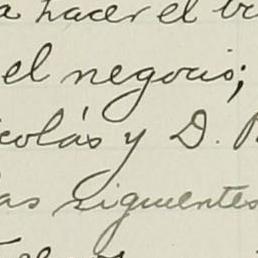 a hacer el
el negocio;
icolás y D.
las siguientes